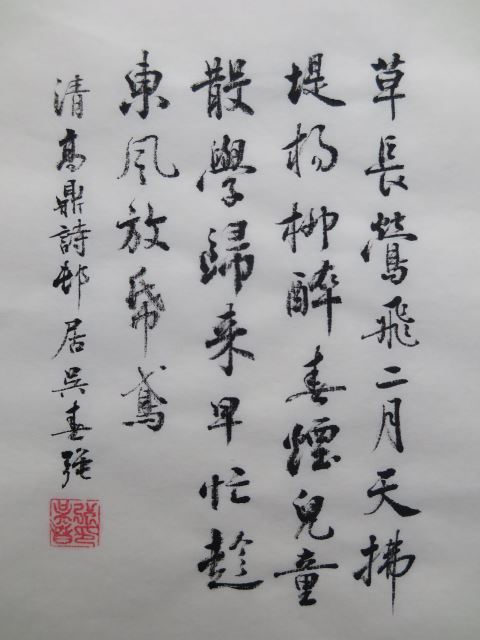 草長鶯飛二月天拂
堤楊柳醉春煙兒童
散學歸来早忙趁
東風放帋鳶
清高鼎詩邨居吳春强